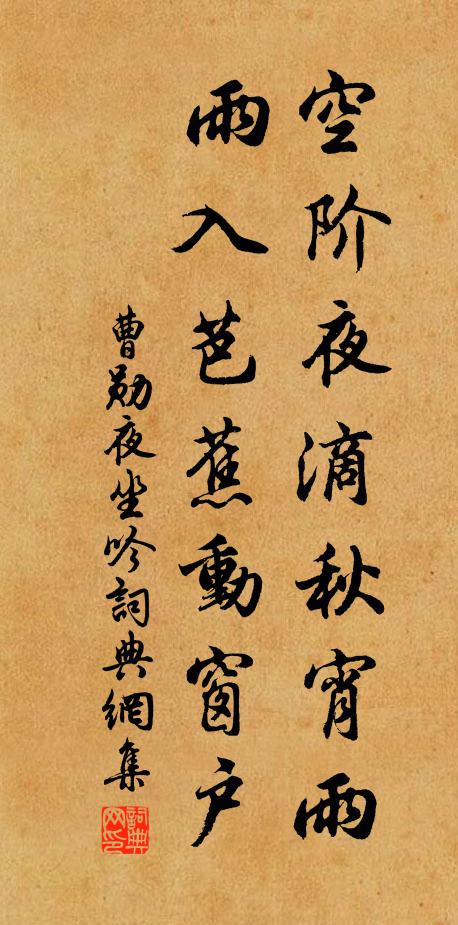 空阶夜滴秋宵雨
雨入芭蕉動窗户
曹勛夜坐吟詞典網集
詞典网印